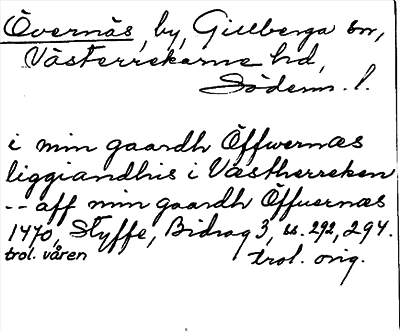 Övernäs, by, Gillberga sn,
Västerrekarne hd,
Söderm. l.
i min gaardh Öffwernæs
liggiandhis i Væstherreken
-- aff min gaardh Öffuernæs
1470, Styffe, Bidrag 3, ss. 292, 294.
trol. våren trol. orig.